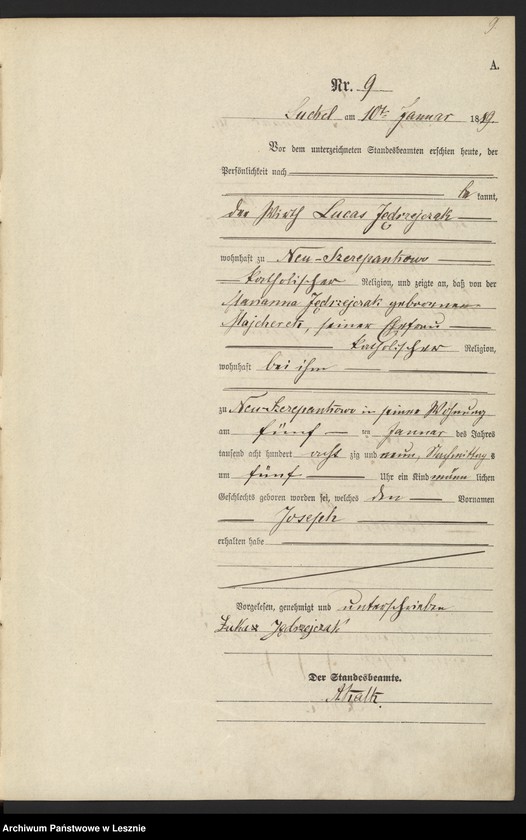 9.
A.
Nr. 9
Luchel am 10t Januar 1889.
Vor dem unterzeichneten Standesbeamten erschien heute, der
Persönlichkeit nach
be kannt,
der Wirth Lucas Jędrzejczak
wohnhaft zu Neu-Szczepankowo
katholischer Religion, und zeigte an, daß von der
Marianna Jędrzejczak geborenen
Majcherek, seiner Ehefrau
katholischer Religion,
wohnhaft bei ihm
zu Neu-Szczepankowo in seiner Wohnung
am fünf ten Januar des Jahres
tausend acht hundert acht zig und neun, Nachmittags
um fünf Uhr ein Kind männ lichen
Geschlechts geboren worden sei, welches den Vornamen
Joseph
erhalten habe
Vorgelesen, genehmigt und unterschrieben
Jędrzejczak
Der Standesbeamte.
Archiwum Państwowe w Lesznie